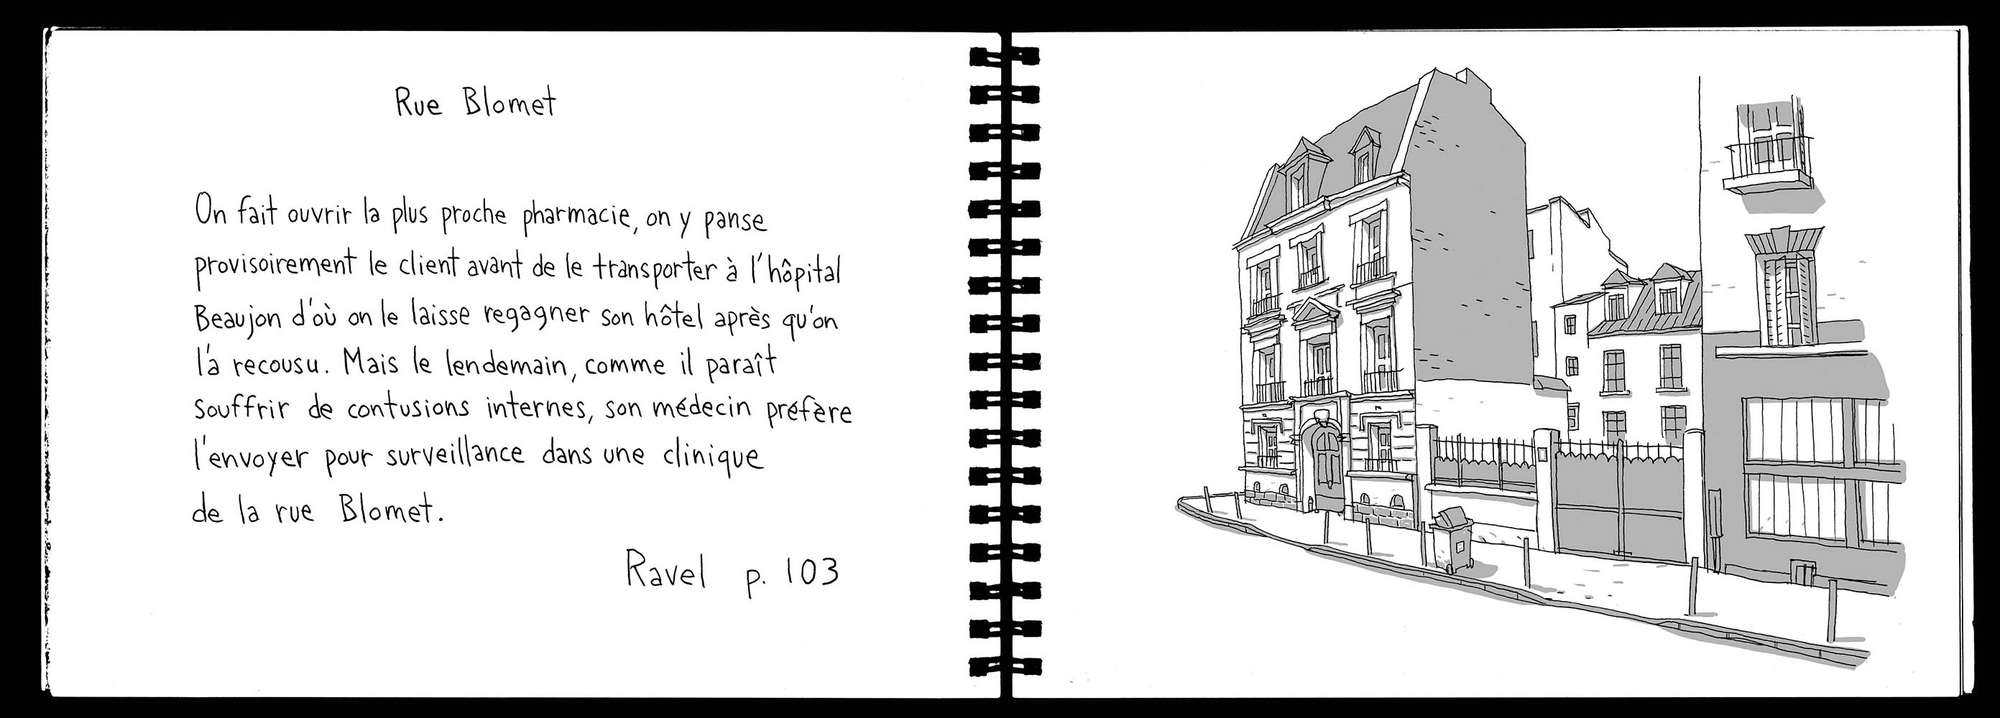 Rue Blomet
On fait ouvrir la plus proche pharmacie, on y panse
provisoirement le client avant de le transporter à l'hôpital
Beaujon d'où on le laisse regagner son hôtel après qu'on
l'a recousu. Mais le lendemain, comme il paraît
souffrir de contusions internes, son médecin préfère
l'envoyer pour surveillance dans une clinique
de la rue Blomet.
Ravel p. 103